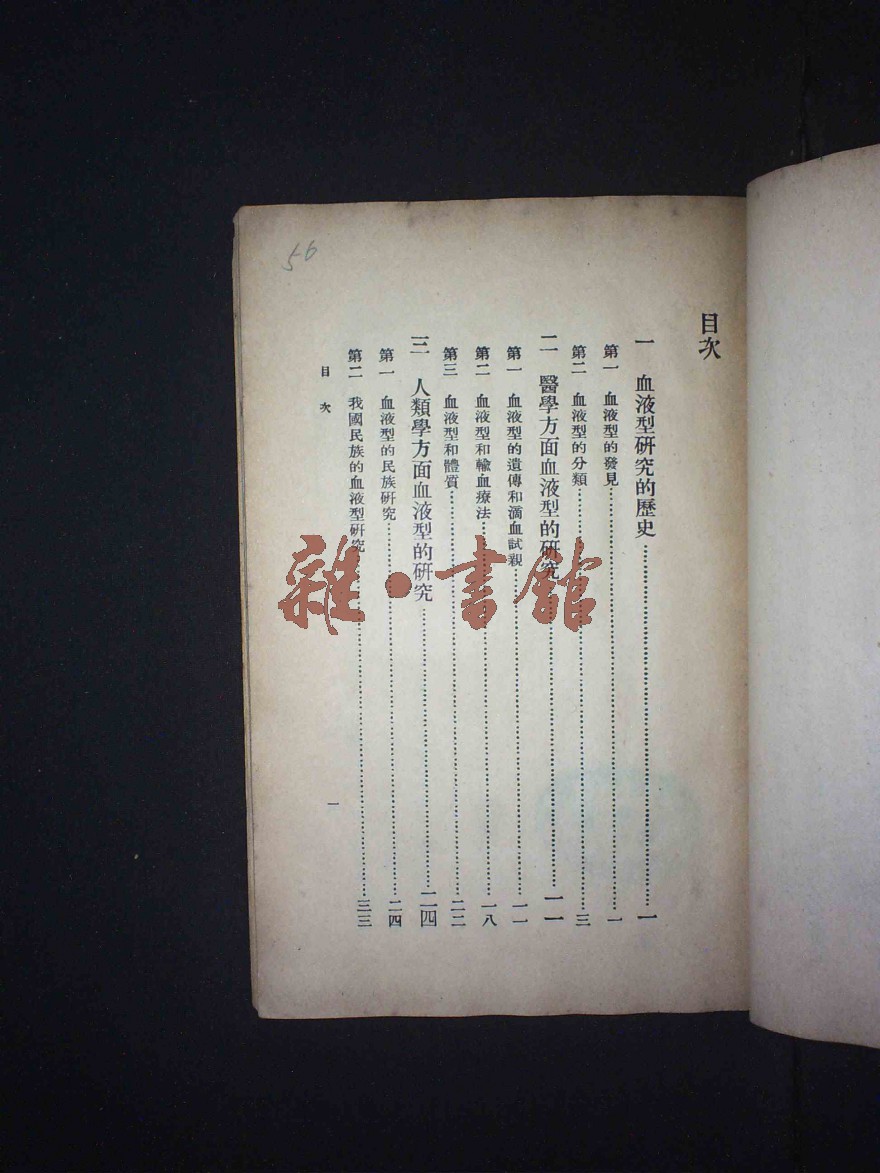 目次
一　血液型研究的歷史……一
第一　血液型的發見……一
第二　血液型的分類……三
二　醫學方面血液型的研究……一一
第一　血液型的遺傳和滴血試親……一一
第二　血液型和輸血療法……一八
第三　血液型和體質……二二
三　人類學方面血液型的研究……二四
第一　血液型的民族研究……二四
第二　我國民族的血液型研究……三三
目次
一
56
雜·書館